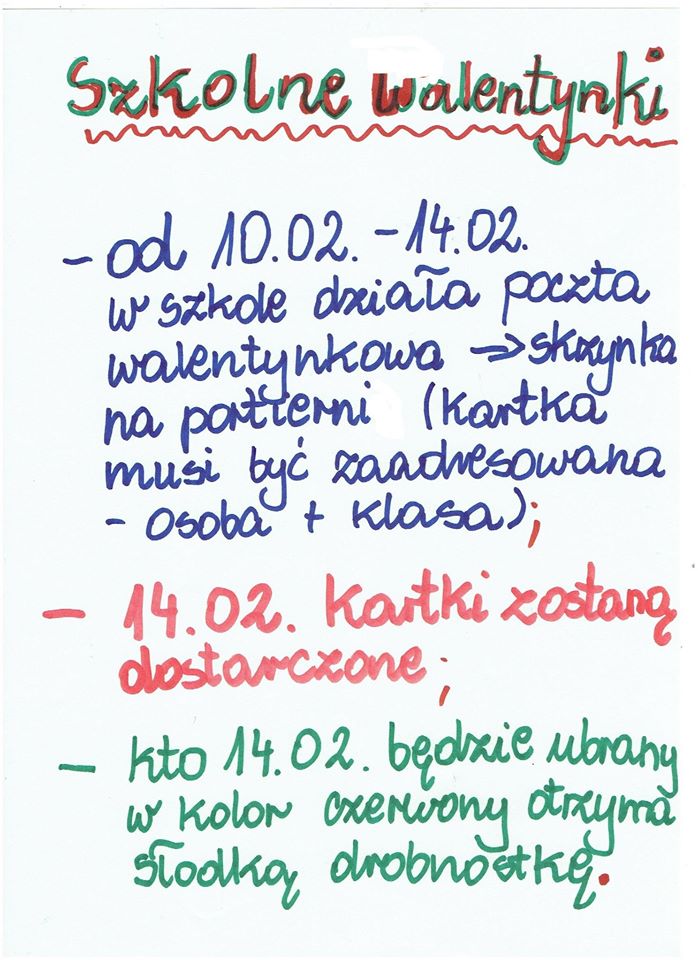 Szkolne walentynki
- od 10.02. - 14.02.
w szkole działa poczta
walentynkowa → skrzynka
na portierni (kartka
musi być zaadresowana
- osoba + klasa);
- 14.02. kartki zostaną
dostarczone;
- kto 14.02. będzie ubrany
w kolor czerwony otrzyma
słodką drobnostkę.